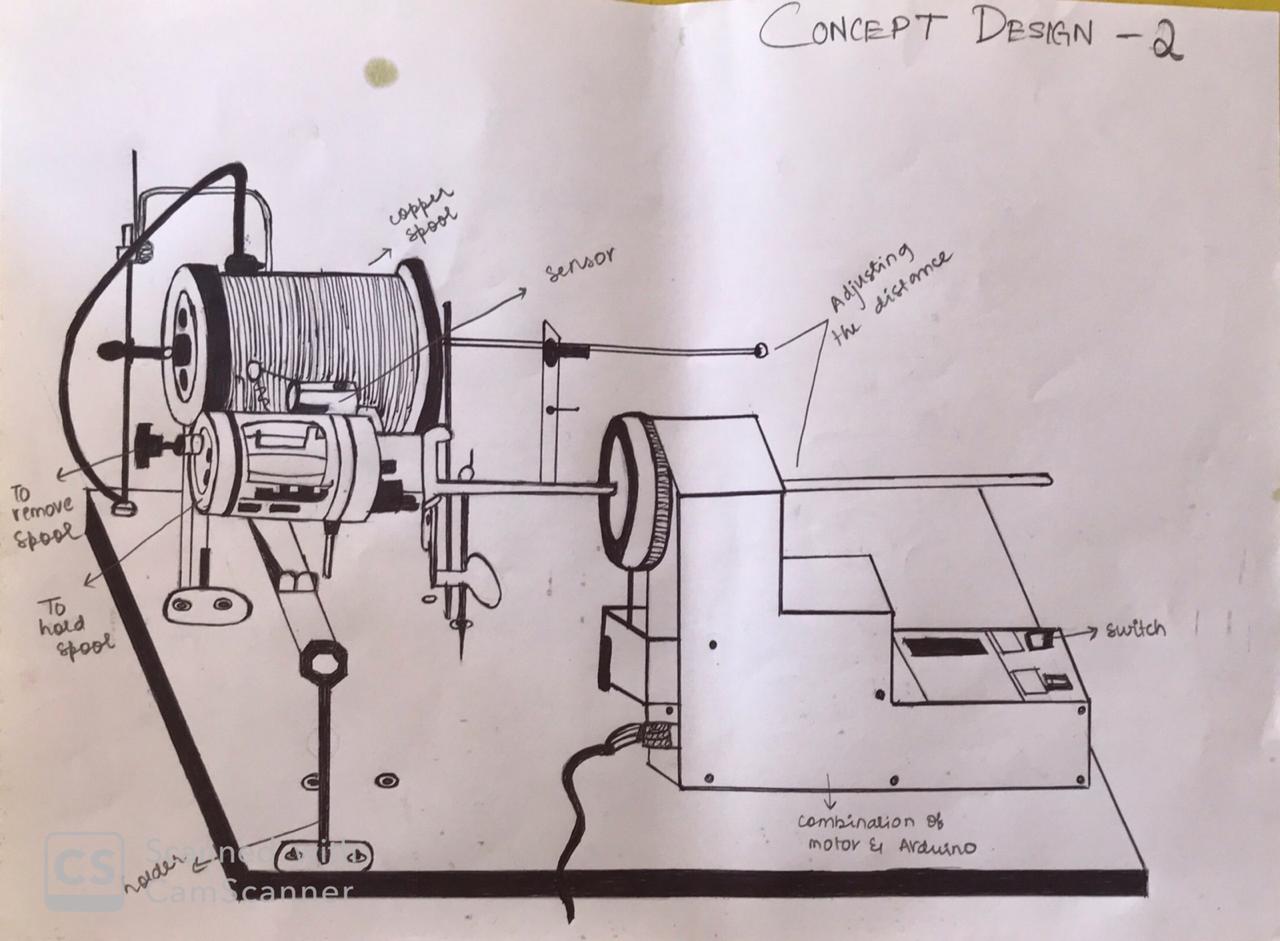 CONCEPT DESIGN - 2
copper
spool
sensor
Adjusting
the distance
To
remove
spool
To
hold
spool
switch
combination of
motor & Arduino
holder
CS
Scanned with
CamScanner